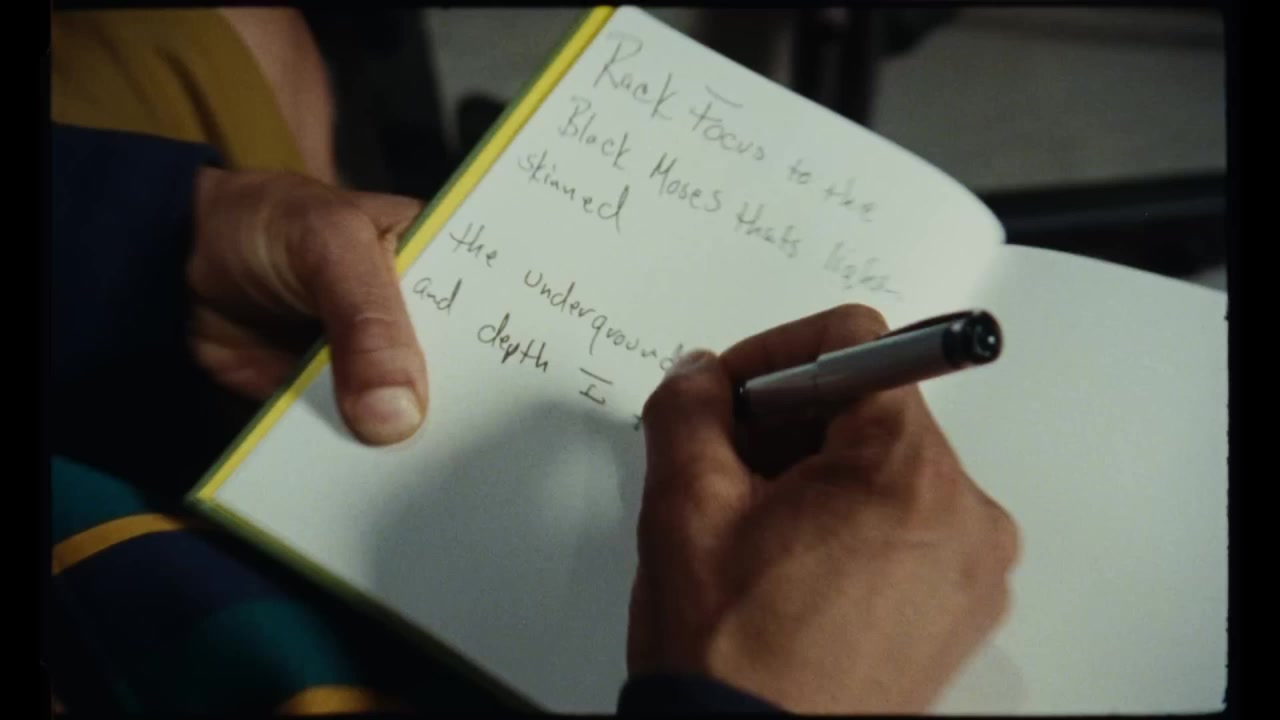 Rack Focus to the
Black Moses thats light
skinned
the underground
and depth I